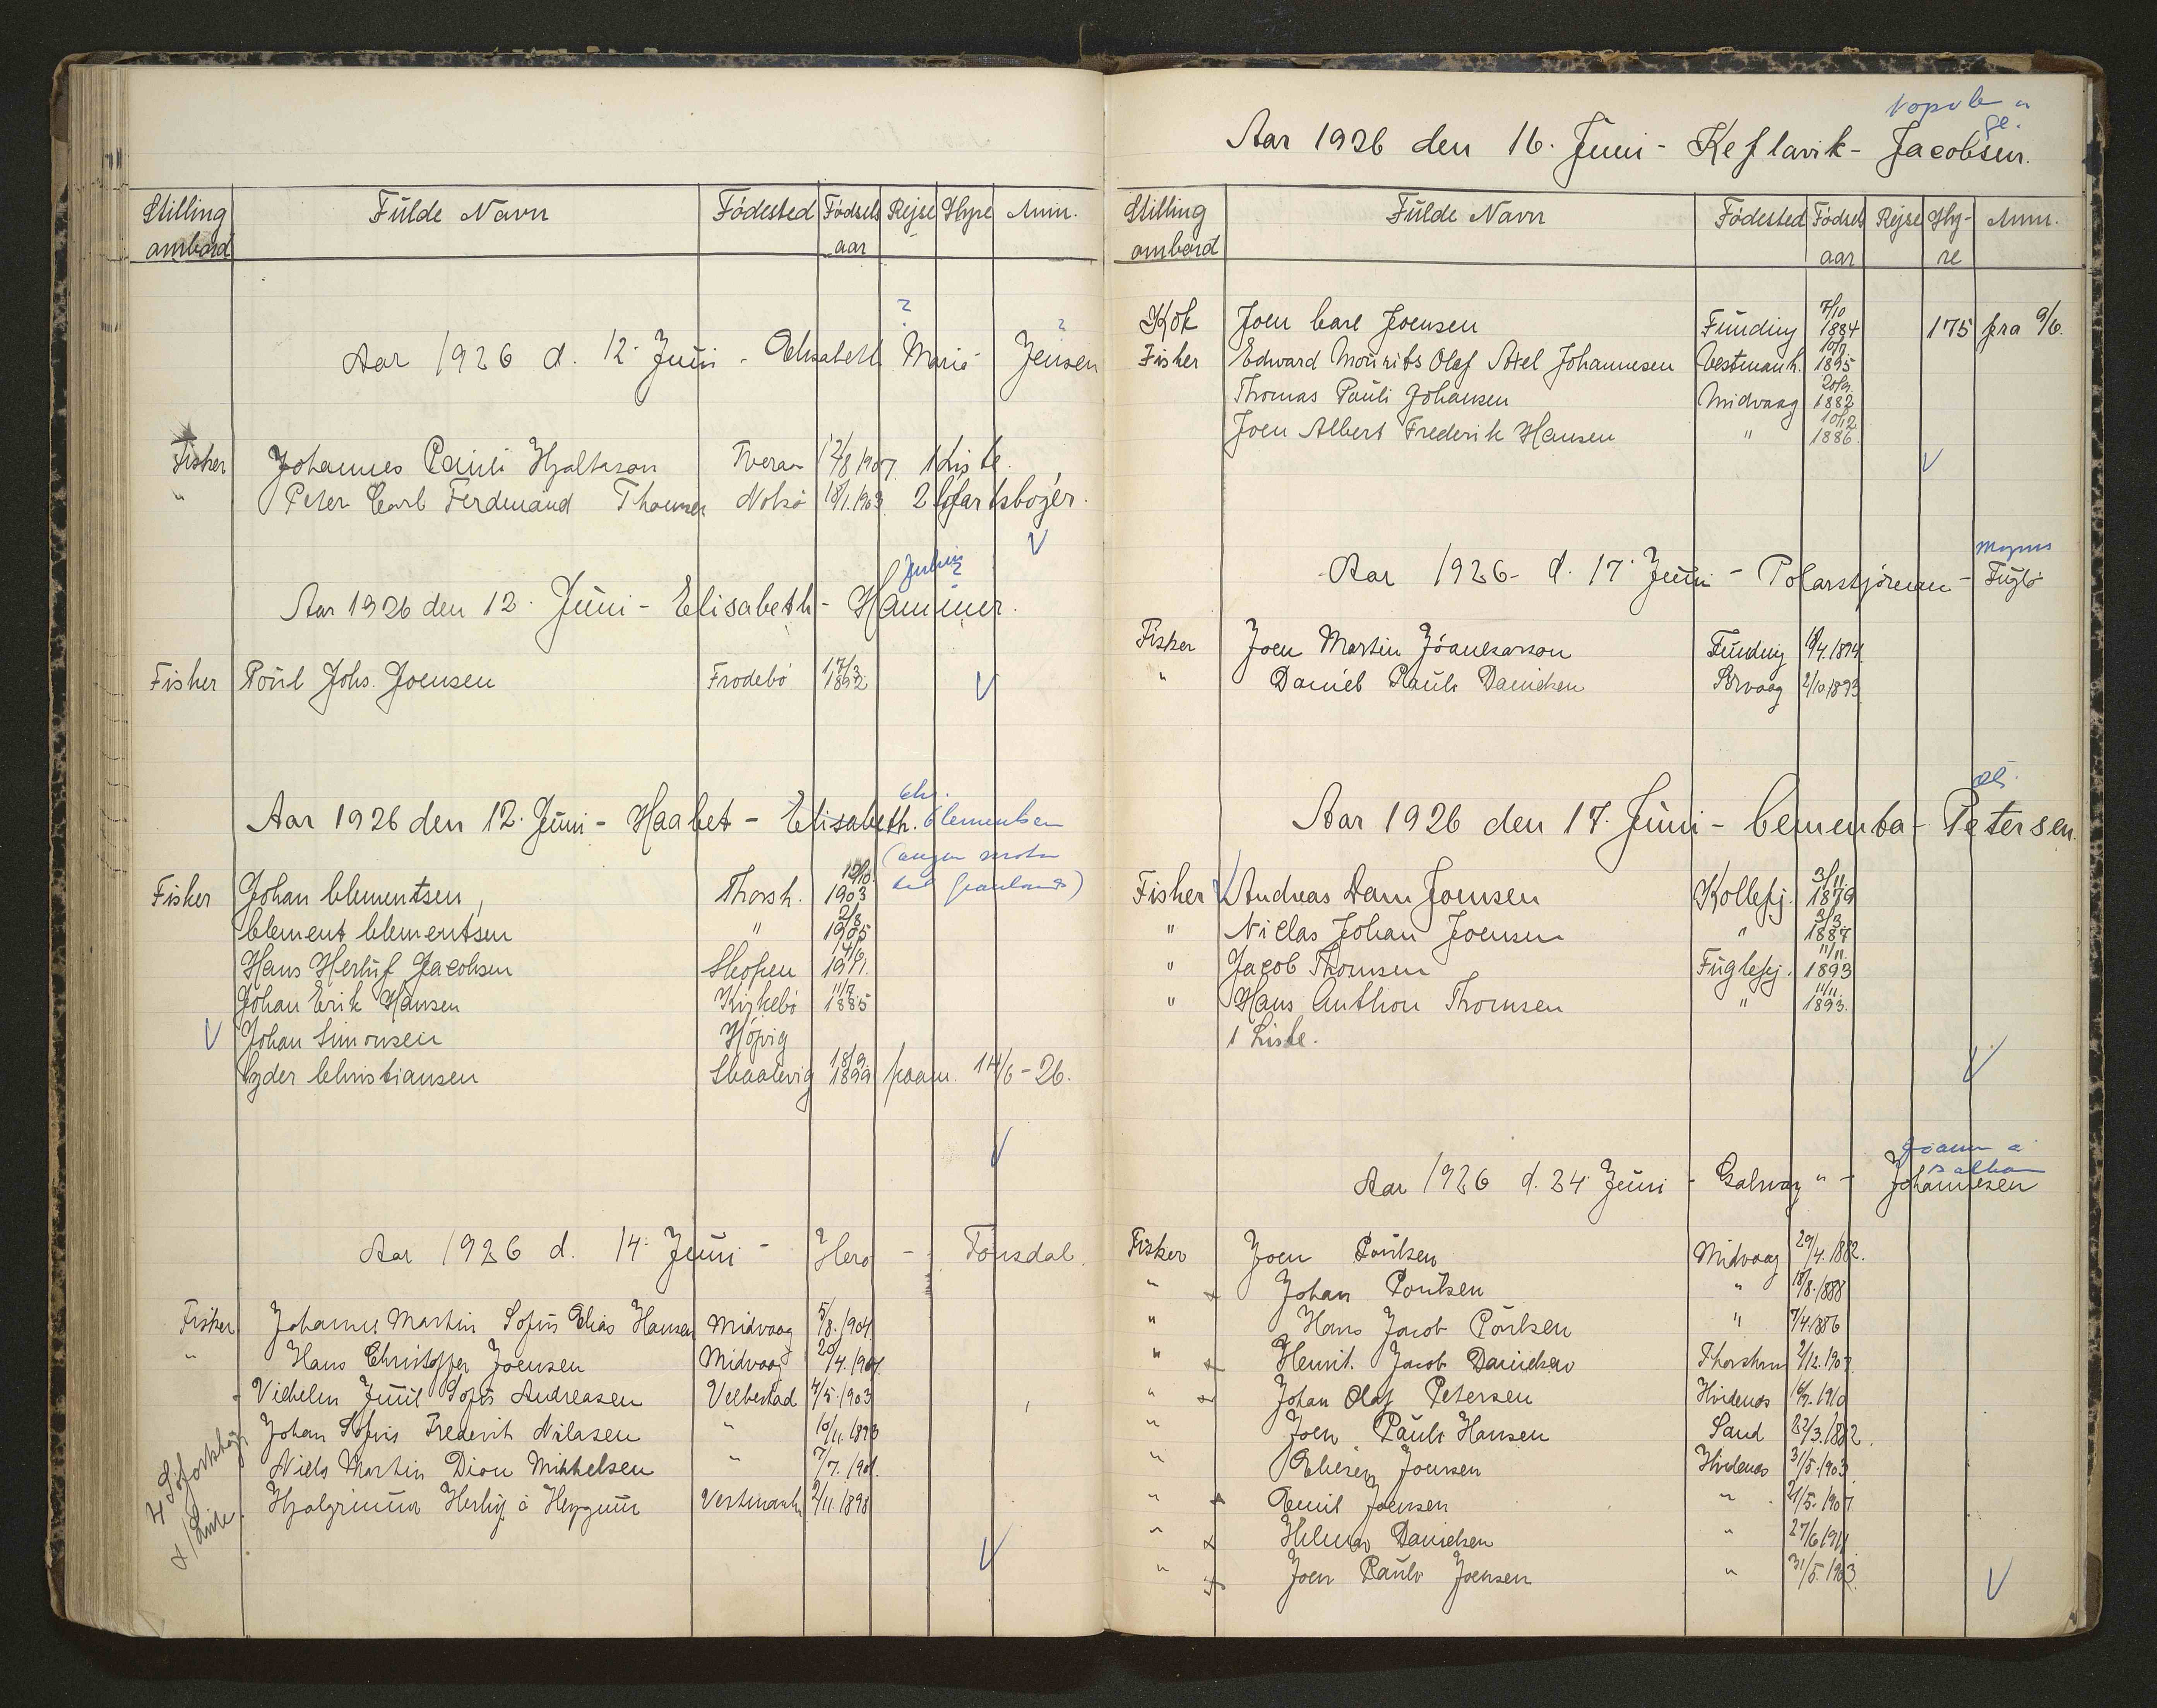 Stilling ombord Fulde Navn Födested Födsels aar Rejse Hyre Anm.
Aar 1926 d. 12. Juni - Elisabeth Maria - Jensen
? ?
Fisker Johannes Pauli Hjaltason Tveraa 12/8 1907 1 Liste
" Peter Carl Ferdinand Thomsen Nolsö 18/1.1903 2 Söfartsbøger.
Aar 1926 den 12. Juni - Elisabeth - Hammer.
Fisker Poul Johs. Joensen Frodebö 17/3 1892
Aar 1926 den 12. Juni - Haabet - Elisabeth. Clementsen
Fisker Johan Clementsen, Thorsh. 1903
Clement Clementsen " 2/8 1905
Hans Herluf Jacobsen Skopen
Johan Erik Hansen Kirkebö 11/7 1885
Johan Simonsen Hövig
Christiansen Skaalevig 18/9 1899 paam. 14/6-26.
Aar 1926 d. 14. Juni - Hero - Tousdal.
Fisker Johannes Martin Sofus Elias Hansen Midvaag 5/8.1904
" Hans Christoffer Joensen Midvaag 20/4.1901.
Vilhelm Juul Sofus Andreasen Velbestad 4/5.1903
Johan Sofus Frederik Nilasen " 10/11.1893
Niels Martin Dion Mikkelsen " 7/7.1901.
Hjalgrimur Herluf á Heygum Vestmanh 2/11.1898
4 Söfartsbg
1 Liste.
Aar 1926 den 16. Juni - Keflavik - Jacobsen.
Stilling ombord Fulde Navn Födested Födsels aar Rejse Hy-re Anm.
Kok Joen Carl Joensen Funding 7/10 1884 175 fra 9/6.
Fisker Edward Mourits Olaf Axel Johannesen Vestmanh. 1895
Thomas Pauli Johansen Midvaag 20/9. 1882
Joen Albert Frederik Hansen " 10/12 1886.
Aar 1926 - d. 17. Juni - Polarstjörnen - Fuglö
Magnus
Fisker Joen Martin Jóanesarson Funding 1894
" Daniel Pauli Danielsen Porvaag 2/10 1893
Aar 1926 den 17. Juni - Cementa - Petersen.
Fisker Andreas Dam Joensen Kollefj. 3/11. 1879
" Niclas Johan Joensen " 3/3. 1887
" Jacob Thomsen Fuglefj. 11/11. 1893
" Hans Anthon Thomsen " 11/11. 1893.
1 Liste.
Aar 1926 d. 24. Juni - Galway " - Johannesen
Fisker Joen Poulsen Midvaag 29/4.1882.
" Johan Poulsen " 18/8.1888
" Hans Jacob Poulsen " 7/4.1886
" Henrik Jacob Danielsen Thorshvn 2/12.190
" Johan Olaf Petersen Hvidenæs 1910
" Joen Pauli Hansen Sand 22/3.1882.
" Elieser Joensen Hvidenæs 31/5.1903
" Emil Joensen " 21/5.1907
" Hilmar Danielsen " 27/6 1911
" Joen Pauli Joensen " 31/5.1903